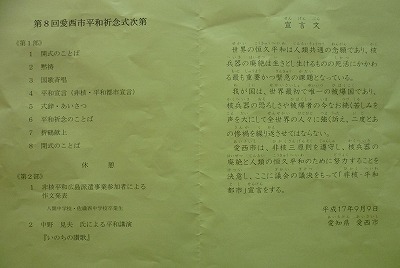 第8回愛西市平和祈念式次第
《第1部》
1 開式のことば
2 黙祷
3 国歌斉唱
4 平和宣言（非核・平和都市宣言）
5 式辞・あいさつ
6 平和祈念のことば
7 折鶴献上
8 閉式のことば
休憩
《第2部》
1 非核平和広島派遣事業参加者による
作文発表
2 中野 見夫 氏による平和講演
『いのちの讃歌』
宣言文
世界の恒久平和は人類共通の念願であり、核
兵器の廃絶は生きとし生けるものの死活にかかわ
る最も重要かつ緊急の課題となっている。
我が国は、世界最初で唯一の被爆国であり、
核兵器の恐ろしさや被爆者の今なお続く苦しみを
声を大にして全世界の人々に強く訴え、二度とあ
の惨禍を繰り返させてはならない。
愛西市は、非核三原則を遵守し、核兵器の
廃絶と人類の恒久平和のために努力することを
決意し、ここに議会の議決をもって「非核・平和
都市」宣言をする。
平成17年9月9日
愛知県 愛西市